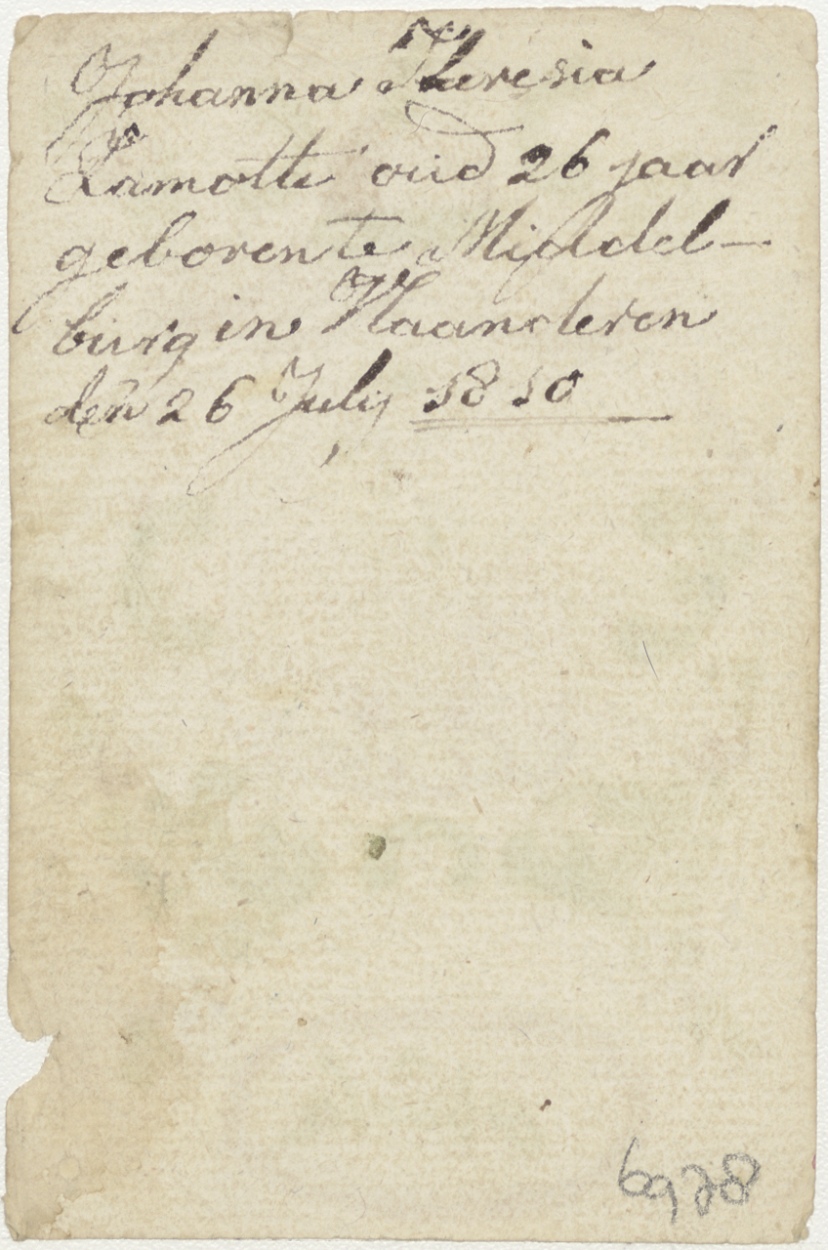 Johanna Theresia
Lamotte oud 26 jaar
geboren te Middel-
burg in Vlaanderen
den 26 July 1810
6978